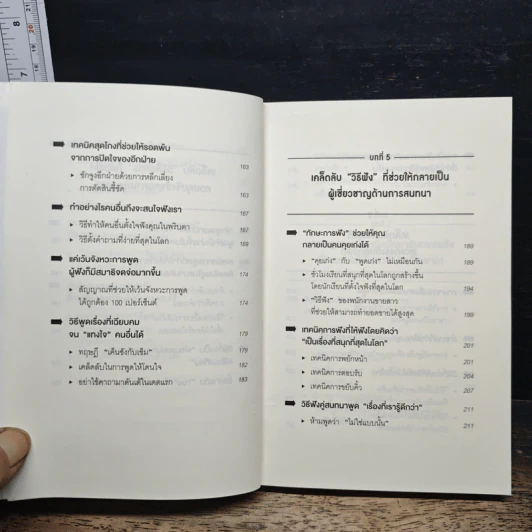 เทคนิคสุดโกงที่ช่วยให้รอดพ้น
จากการปิดใจของอีกฝ่าย 163
ชักจูงอีกฝ่ายด้วยการหลีกเลี่ยง
การตัดสินชี้ชัด 163
ทำอย่างไรคนอื่นถึงจะสนใจฟังเรา 167
วิธีทำให้คนอื่นตั้งใจฟังคุณในพริบตา 167
วิธีตั้งคำถามที่ง่ายที่สุดในโลก
แค่เว้นจังหวะการพูด
ผู้ฟังก็มีสมาธิจดจ่อมากขึ้น 174
สัญญาณที่ช่วยให้เว้นจังหวะการพูด
ได้ถูกต้อง 100 เปอร์เซ็นต์ 174
วิธีพูดเรื่องที่เฉียบคม
จน "แทงใจ" คนอื่นได้ 179
ทฤษฎี "เค้นซังกับเข้ม" 179
เคล็ดลับในการพูดให้โดนใจ 182
อย่าใช้คาถามาคันเต้ในเดตแรก 183
บทที่ 5
เคล็ดลับ "วิธีฟัง" ที่ช่วยให้กลายเป็น
ผู้เชี่ยวชาญด้านการสนทนา
"ทักษะการฟัง" ช่วยให้คุณ
กลายเป็นคนคุยเก่งได้ 189
"คุยเก่ง" กับ "พูดเก่ง" ไม่เหมือนกัน 189
ชั่วโมงเรียนที่สนุกที่สุดในโลกถูกสร้างขึ้น
โดยนักเรียนที่ตั้งใจฟังที่สุดในโลก
"วิธีฟัง" ของพนักงานขายสาว
ที่ช่วยให้สามารถทำยอดขายได้สูงสุด
เทคนิคการฟังที่ให้ฟังโดยคิดว่า
"เป็นเรื่องที่สนุกที่สุดในโลก" 201
เทคนิคการพยักหน้า 201
เทคนิคการตอบรับ 204
เทคนิคการขยับคิ้ว 207
วิธีฟังคู่สนทนาพูด "เรื่องที่เรารู้ดีกว่า" 211
ห้ามพูดว่า "ไม่ใช่แบบนั้น" 211
7
8
20
21